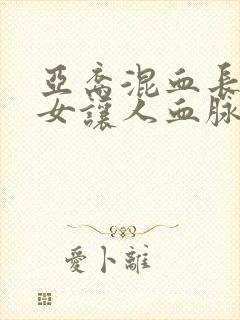 亞裔混血長
女讓人血脉
愛卜離